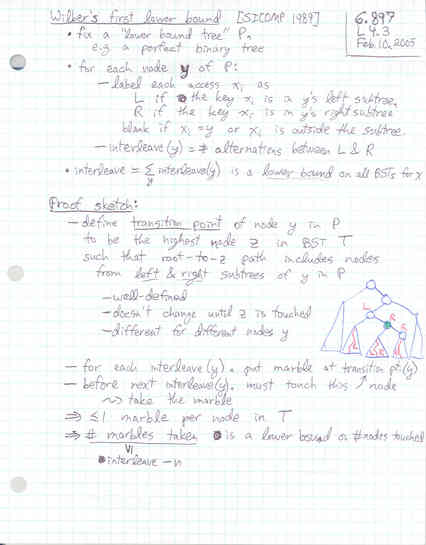 Wilber's first lower bound [SICOMP 1989]
6.897
L 4.3
Feb. 10, 2005
• fix a "lower bound tree" P,
e.g. a perfect binary tree
• for each node y of P:
— label each access xᵢ as
L if the key xᵢ is in y's left subtree,
R if the key xᵢ is in y's right subtree
blank if xᵢ = y or xᵢ is outside the subtree
— interleave(y) = # alternations between L & R
• interleave = Σ interleave(y) is a lower bound on all BSTs for x
y
Proof sketch:
— define transition point of node y in P
to be the highest node z in BST T
such that root-to-z path includes nodes
from left & right subtrees of y in P
— well-defined
— doesn't change until z is touched
— different for different nodes y
L
R
L
R
L
R
— for each interleave(y), put marble at transition pt.(y)
— before next interleave(y), must touch this node
⇝ take the marble
⇒ ≤1 marble per node in T
⇒ # marbles taken is a lower bound on # nodes touched
VI
interleave − n